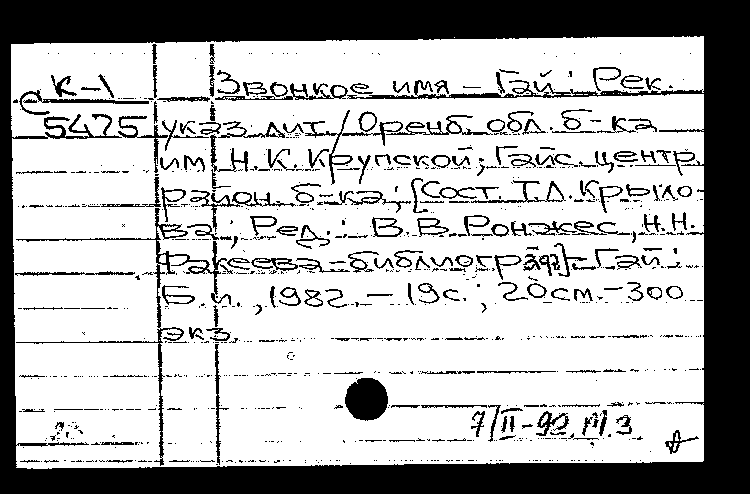 К-1 Звонкое имя - Гай: Рек.
С 5475 указ. лит. / Оренб. обл. б-ка
им. Н.К. Крупской; Гайс. центр.
район. б-ка; [Сост. Т.Л. Крыло-
ва; Ред.: В.В. Ронжес, Н.Н.
Факеева-библиограф]. - Гай:
Б.и., 1982. - 19с.; 20см. - 300
экз.
7/II-92. М.З.